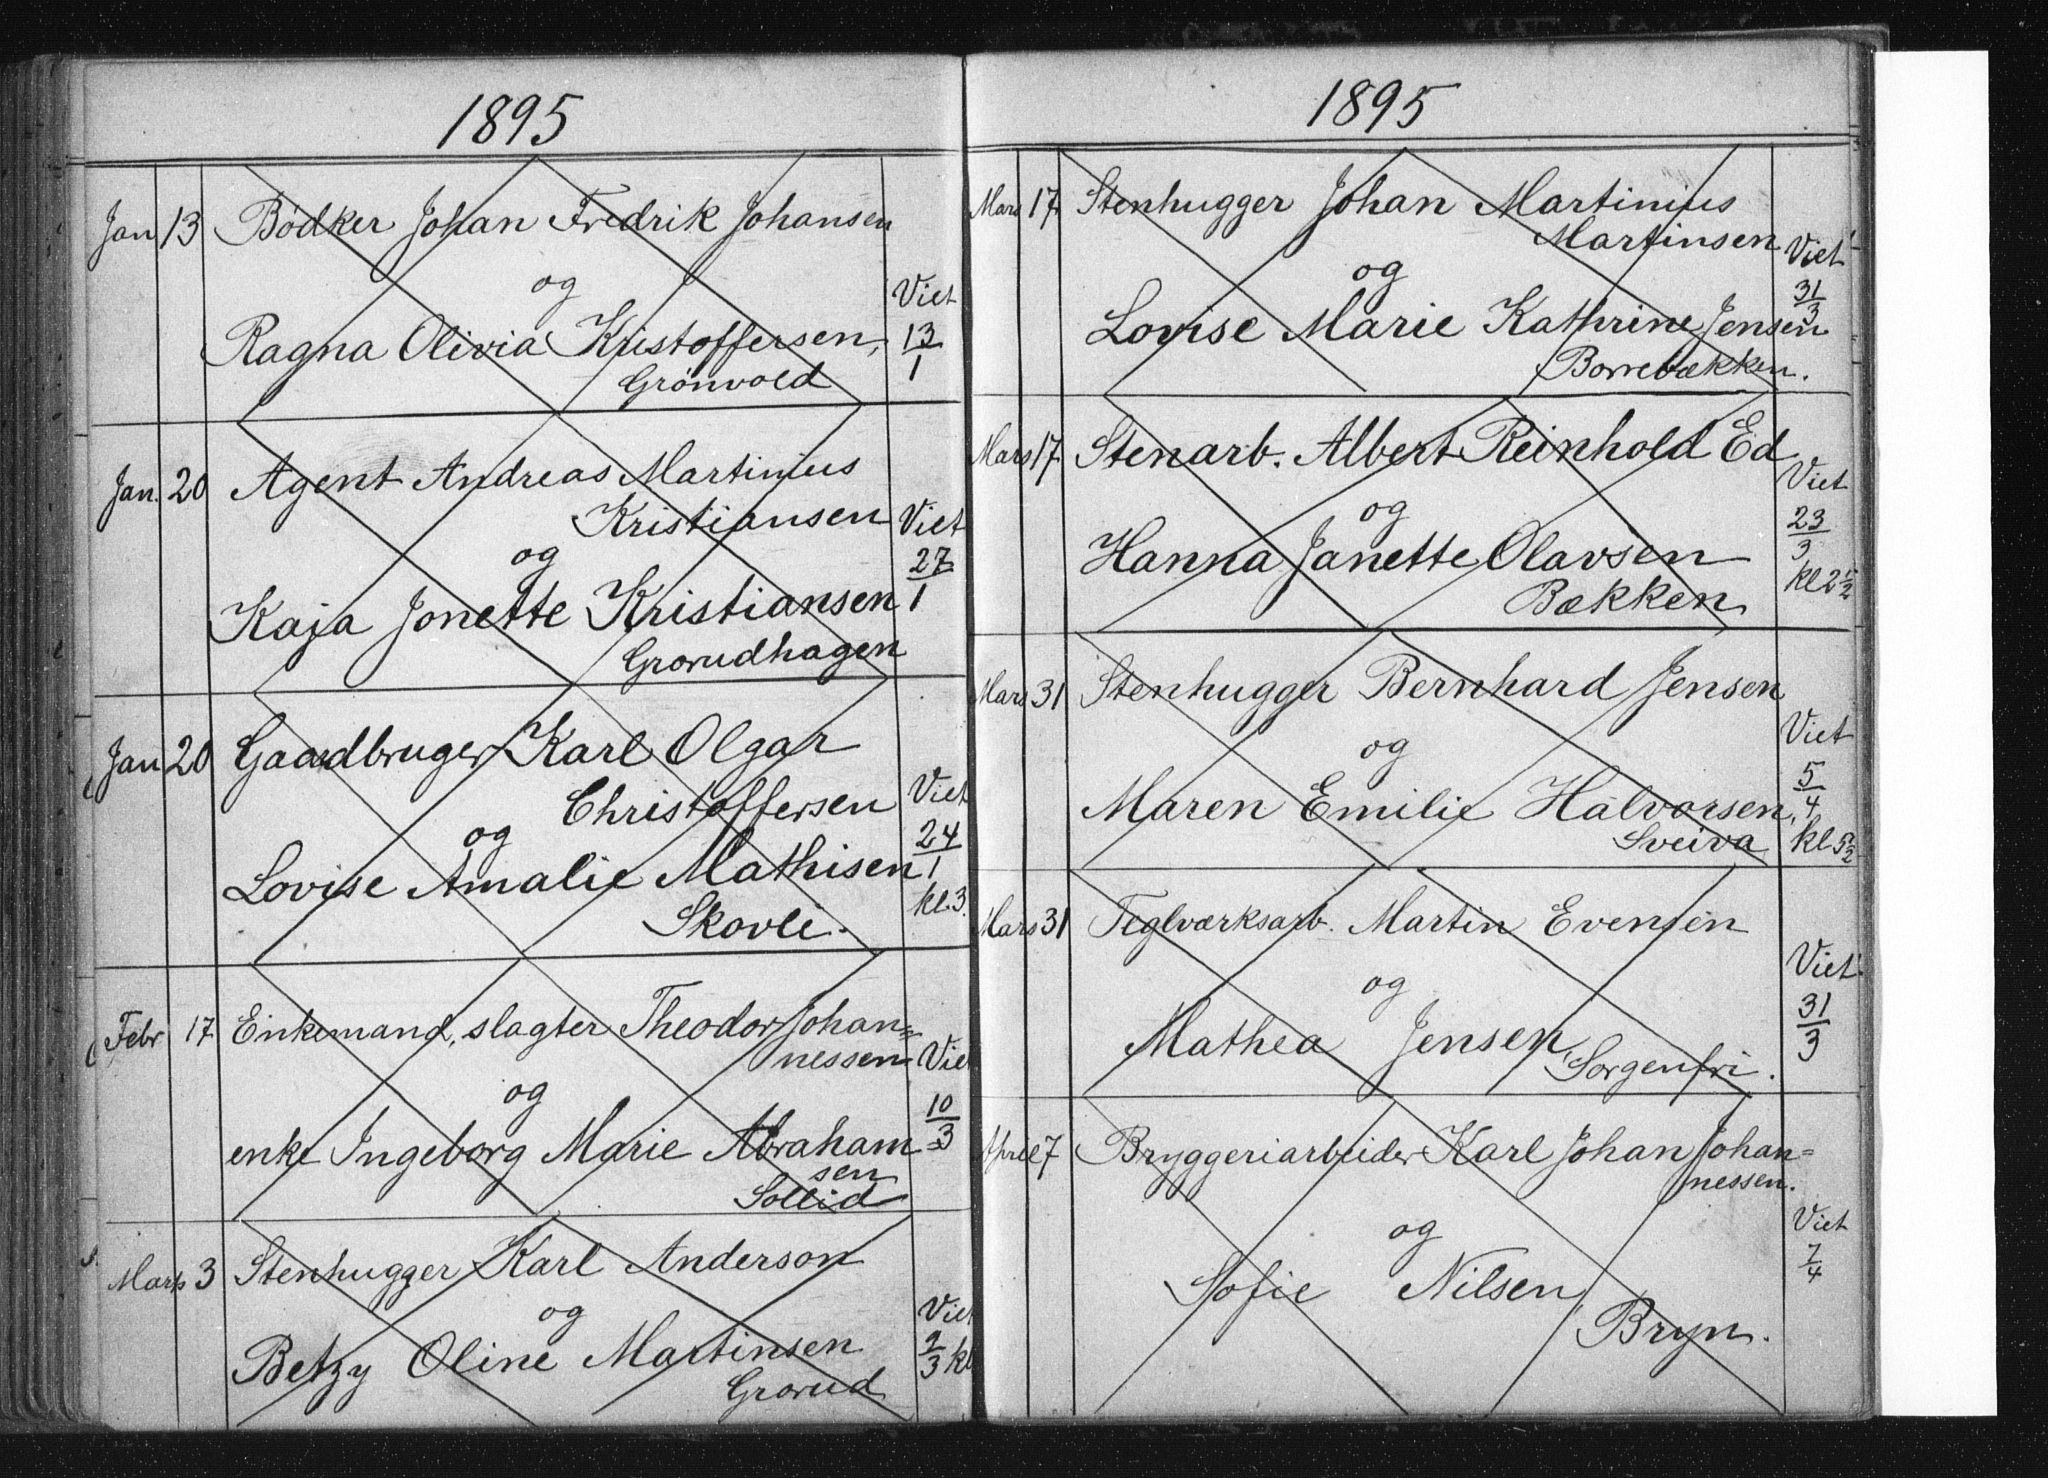 1895
Jan 13 Bødker Johan Fredrik Johansen
og
Viet
Ragna Olivia Kristoffersen, 13/1
Grønvold
Jan. 20 Agent Andreas Martinius
Kristiansen Viet
og 27/1
Kaja Jonette Kristiansen
Grorudhagen
Jan 20 Gaardbruger Karl Olgar
Christoffersen Viet
og 24/1
Lovise Amalie Mathisen kl. 3.
Skovli.
Febr 17 Enkemand, slagter Theodor Johan=
nessen Viet
og 10/3
enke Ingeborg Marie Abraham=
sen
Sollid
Mars 3 Stenhugger Karl Anderson
og Viet
Betzy Oline Martinsen /3 kl
Grorud
1895
Mars 17 Stenhugger Johan Martinius
Martinsen Viet
og 31/3
Lovise Marie Kathrine Jensen
Borrebækken.
Mars 17 Stenarb. Albert Reinhold Ed
Viet
og 23/3
Hanna Janette Olavsen kl 2
Bækken
Mars 31 Stenhugger Bernhard Jensen
Viet
og 5/4
Maren Emilie Halvorsen,
Sveiva kl 5
Mars 31 Teglværksarb. Martin Evensen
Viet
og 31/3
Mathea Jensen,
Sorgenfri.
April 7 Bryggeriarbeider Karl Johan Johan=
nessen.
Viet
og 7/4
Sofie Nilsen
Bryn.